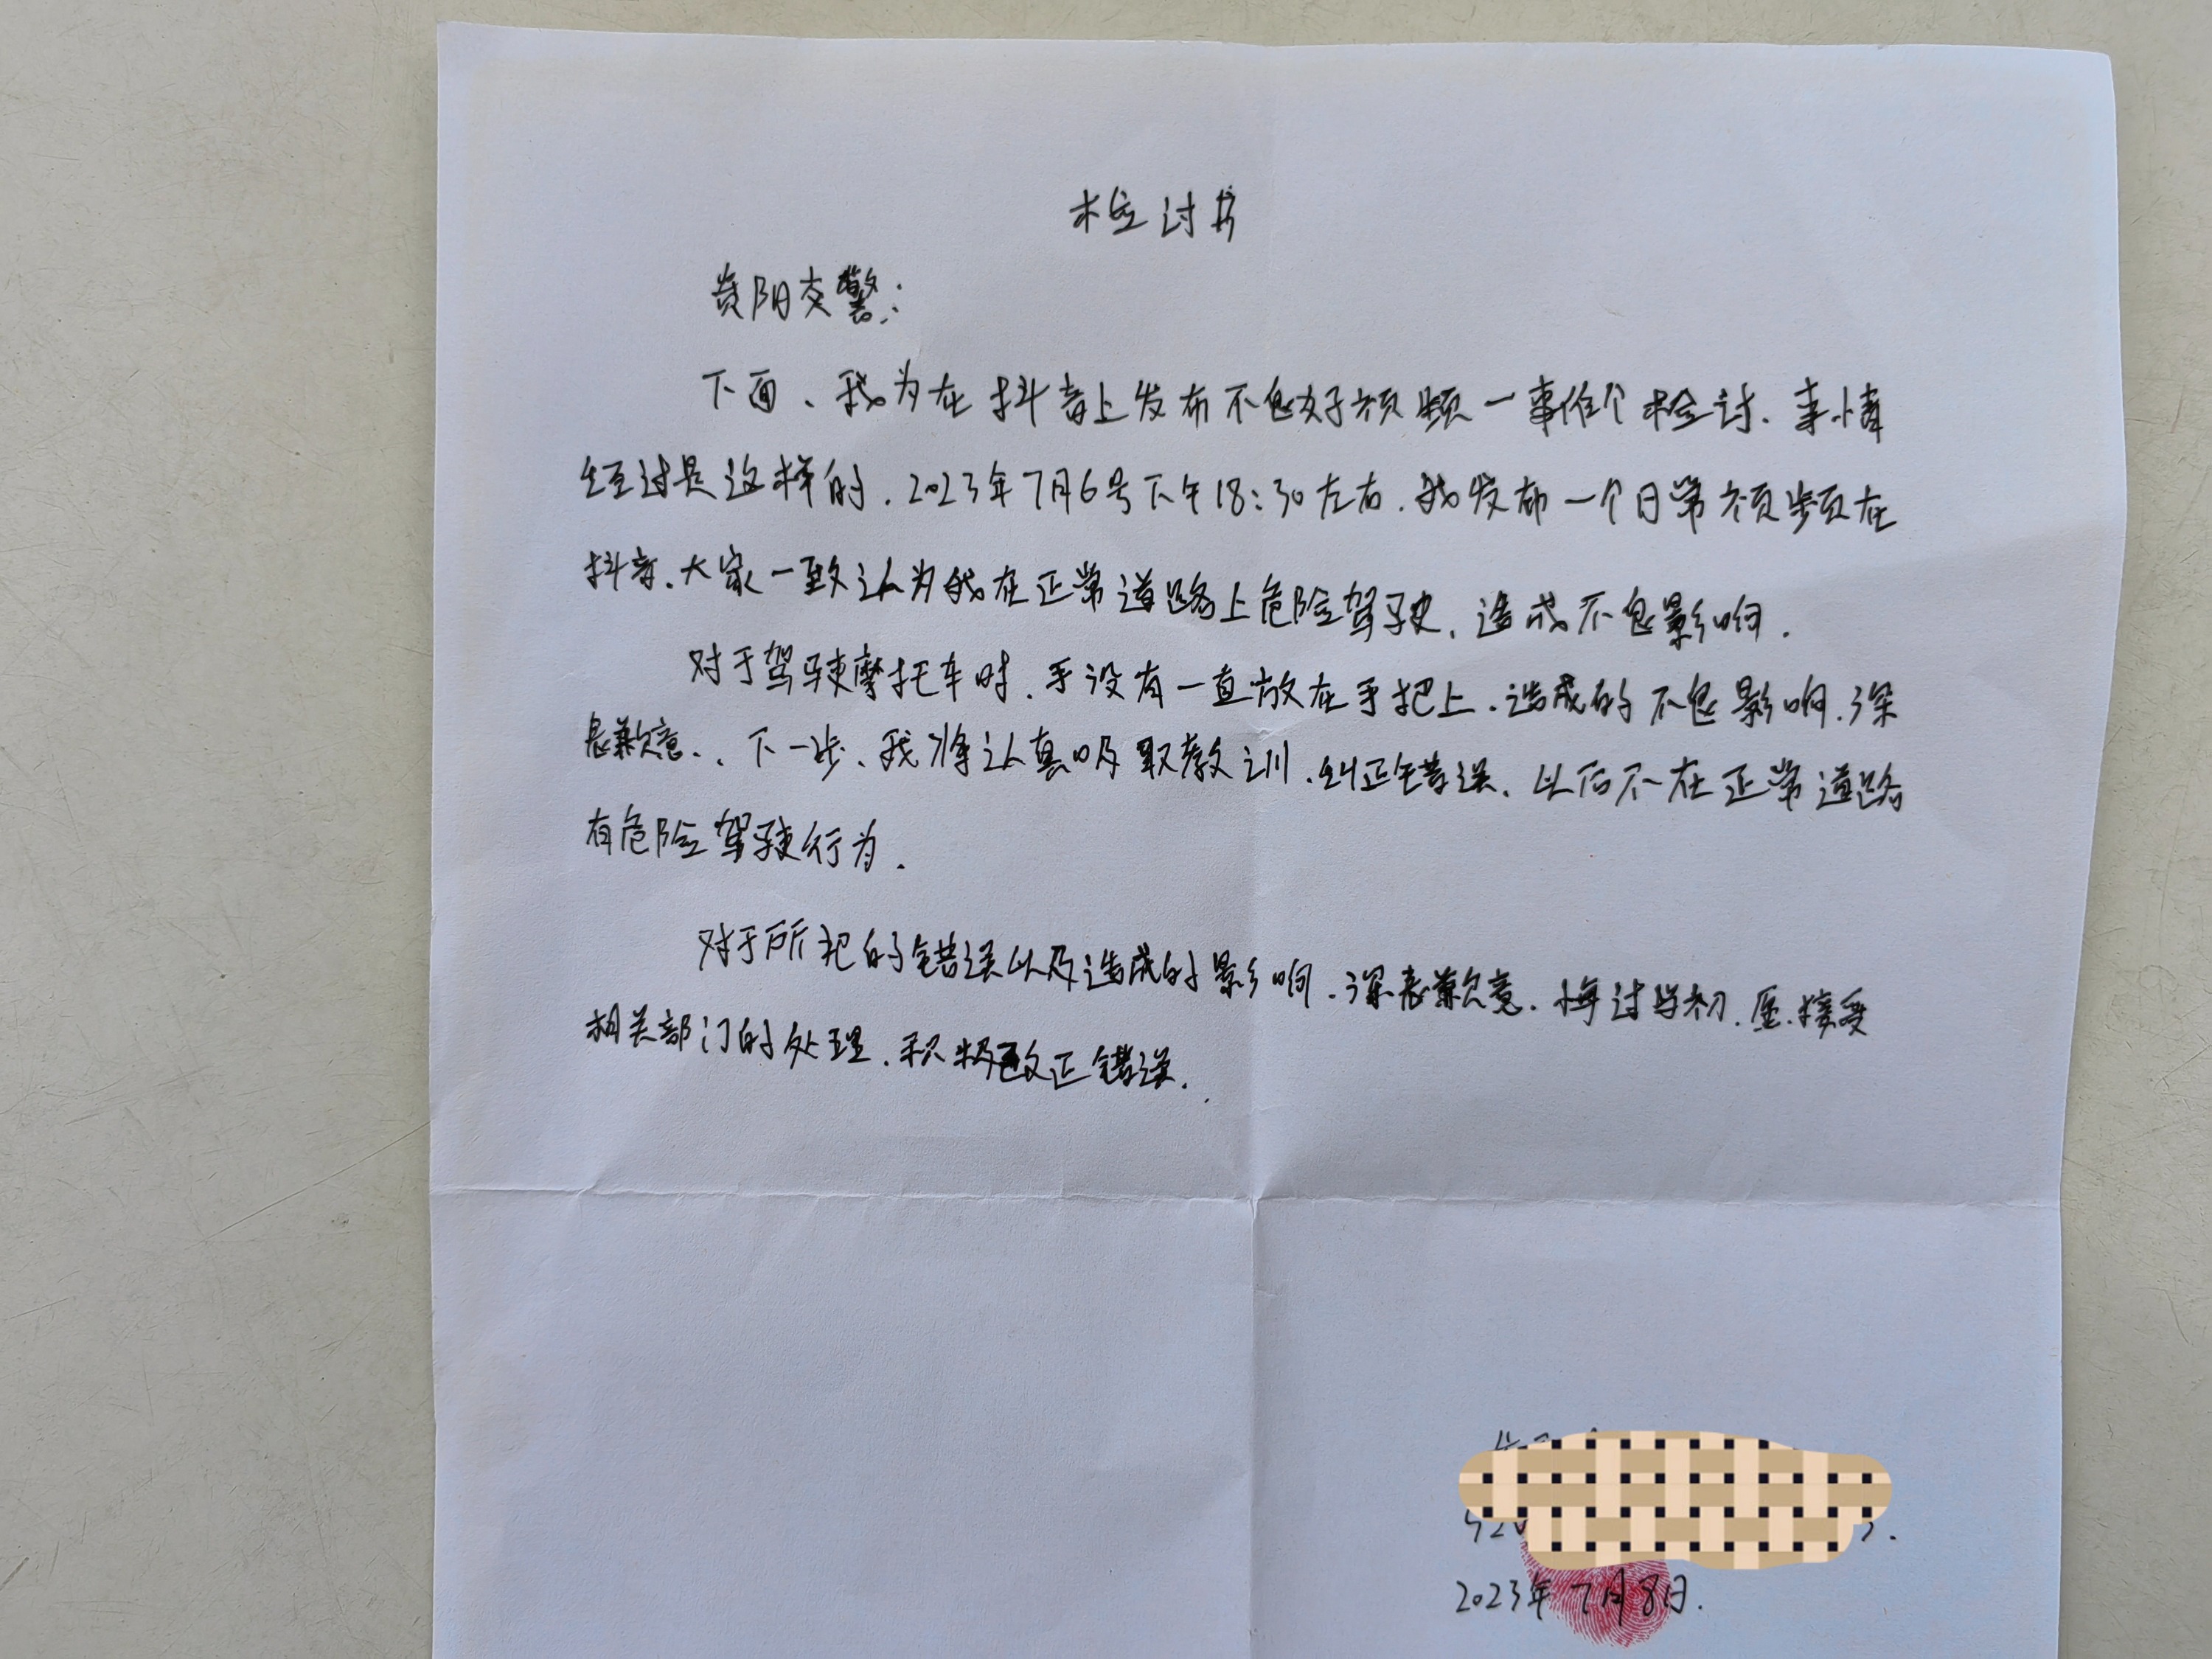 检讨书
资阳交警:
下面、我为在抖音上发布不良好视频一事作个检讨、事情
经过是这样的.2023年7月6号下午18:30左右.我发布一个日常视频在
抖音.大家一致认为我在正常道路上危险驾驶、造成不良影响.
对于驾驶摩托车时.手没有一直放在手把上.造成的不良影响.深
表歉意..下一步、我将认真吸取教训.纠正错误、以后不在正常道路
有危险驾驶行为.
对于所犯的错误以及造成的影响.深表歉意.悔过当初.愿接受
相关部门的处理.积极改正错误.
2023年7月8日.